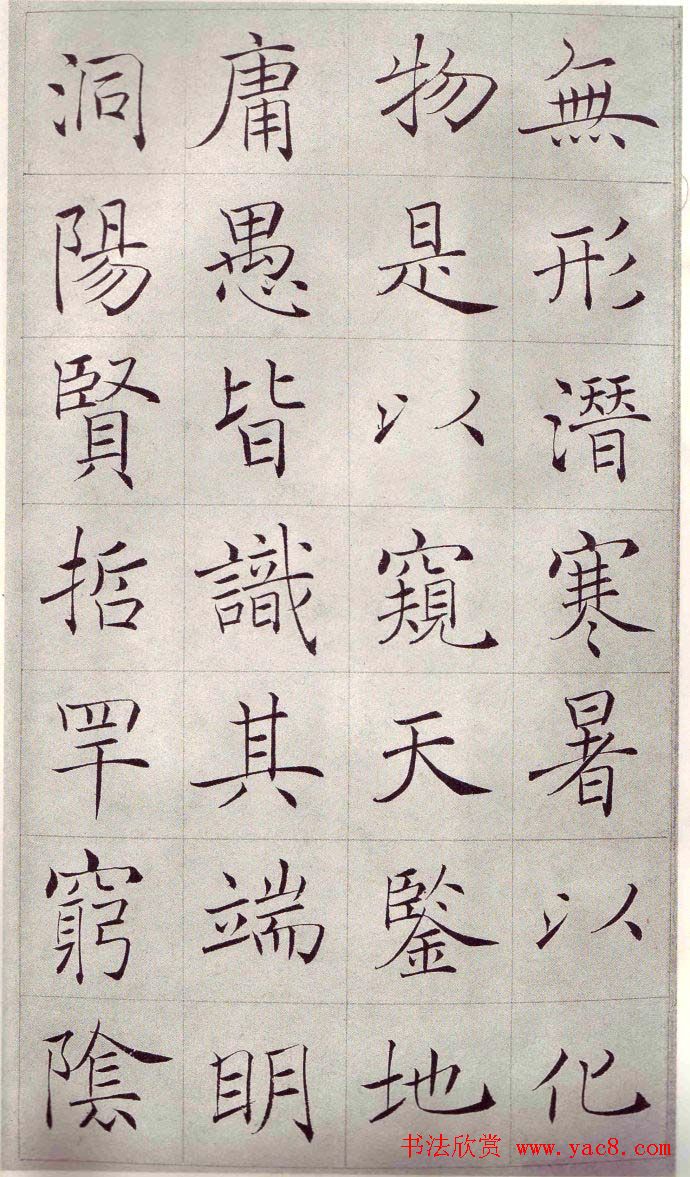 無形潛寒暑以化
物是以窺天鑒地
庸愚皆識其端明
洞陽賢哲罕窮陰
书法欣赏 www.yac8.com